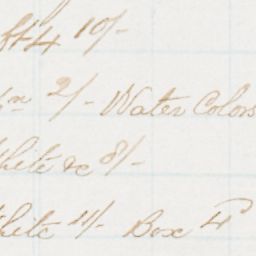 10/-
2/- Water Colors
White &c 8/-
White 11/- Box 4